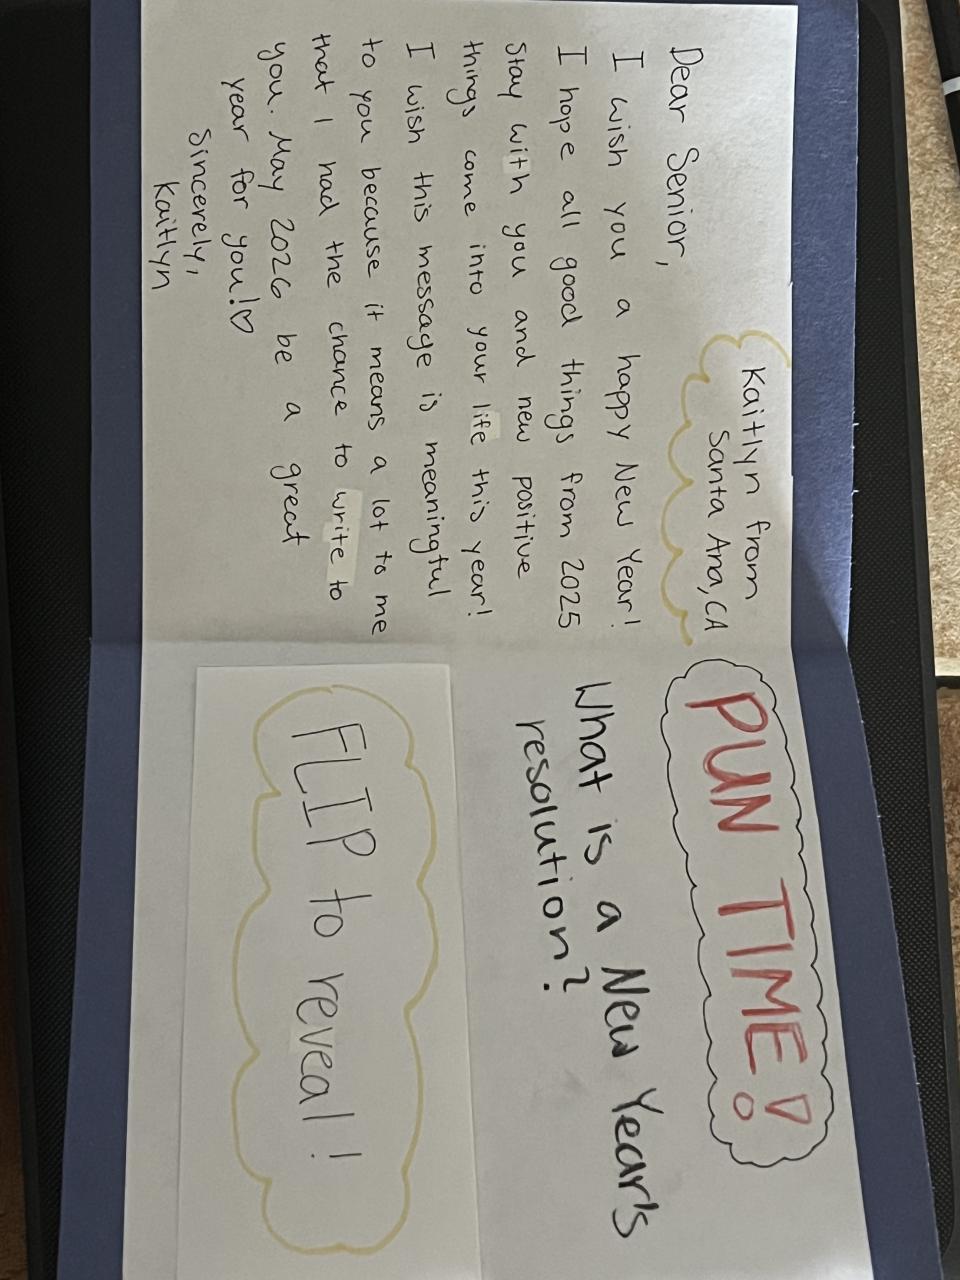 Kaitlyn from
Santa Ana, CA
Dear Senior,
I wish you a happy New Year!
I hope all good things from 2025
Stay with you and new positive
things come into your life this year!
I wish this message is meaningful
to you because it means a lot to me
that I had the chance to write to
you. May 2026 be a great
year for you!♡
Sincerely,
Kaitlyn
PUN TIME!
What is a New Year's
resolution?
FLIP to reveal!